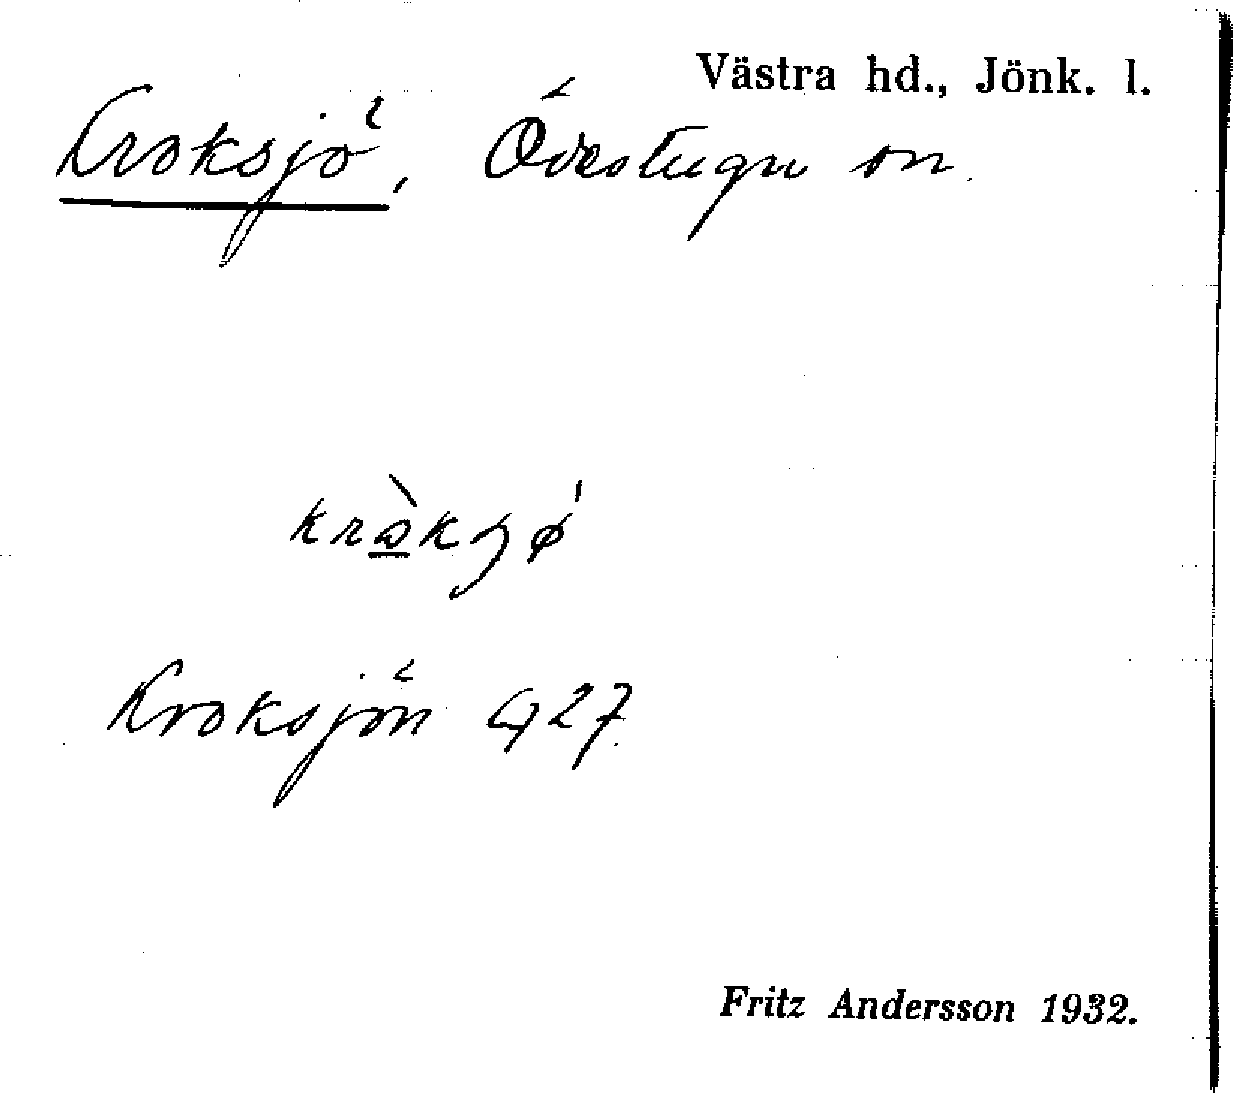 Västra hd., Jönk. l.
Kroksjö, Övrstugu sn.
Kroksjön G 27.
Fritz Andersson 1932.